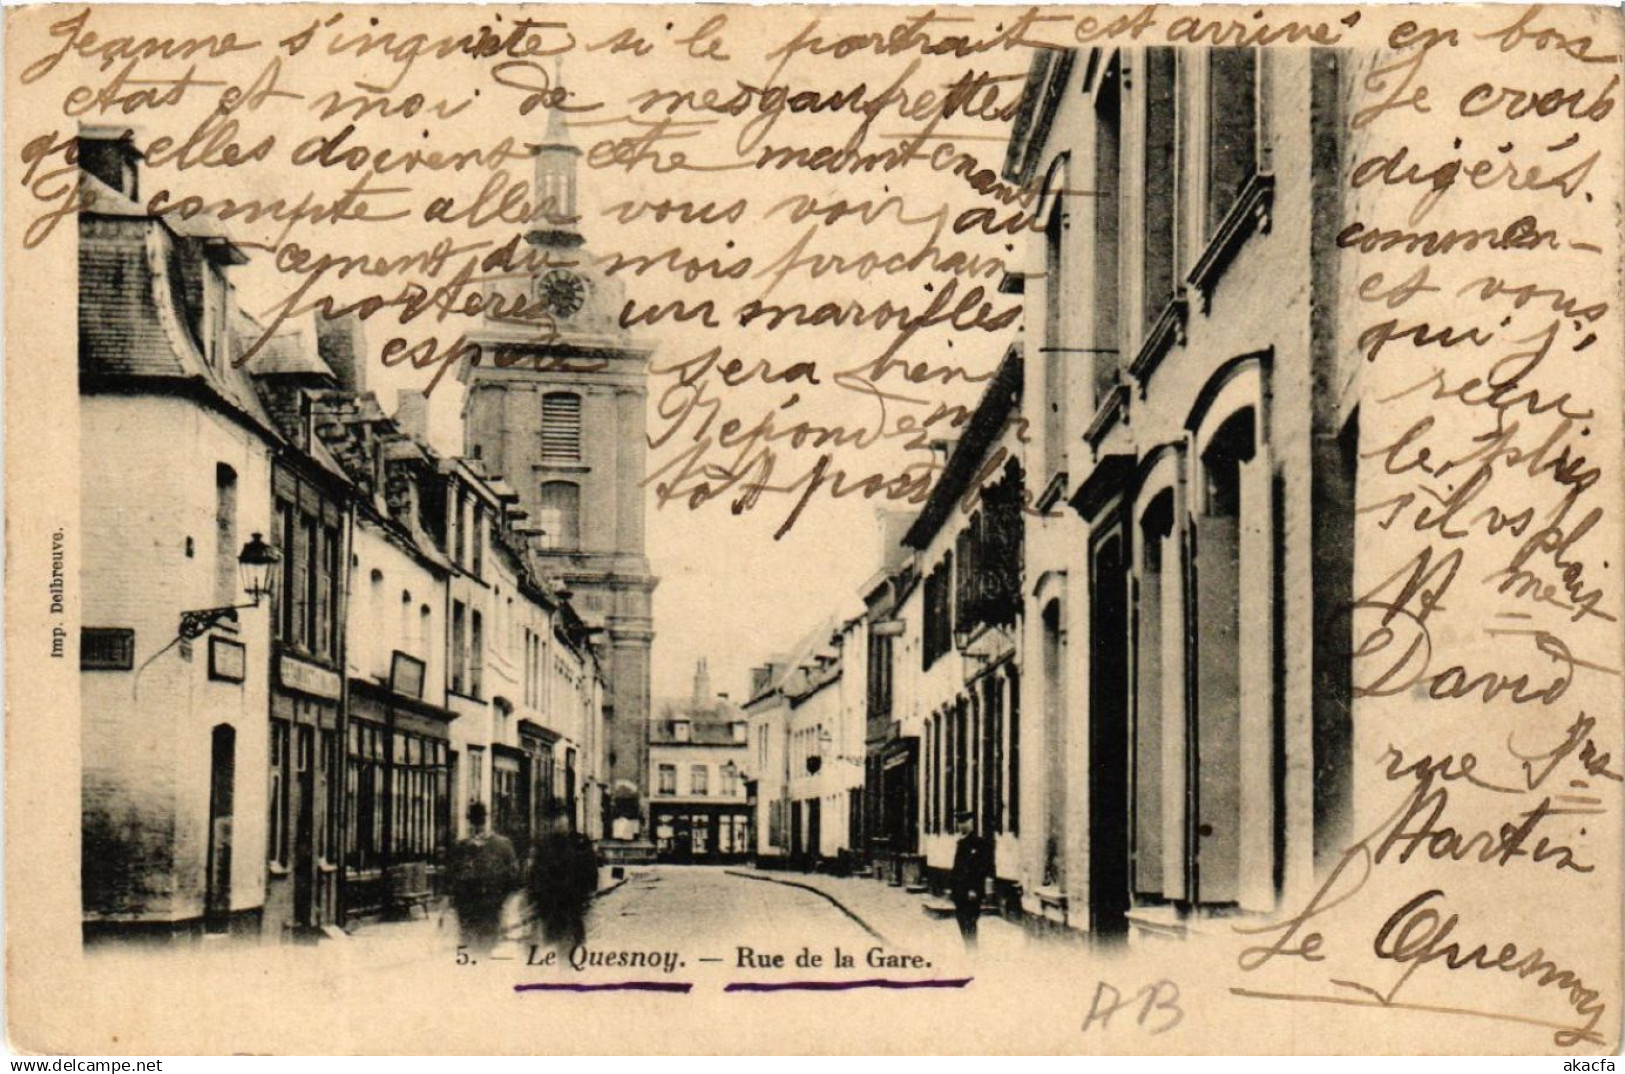 Jeanne s'inquiète si le portrait est arrivé en bon
état et moi de mes gaufrettes Je crois
qu'elles doivent être maintenant digérés.
Je compte aller vous voir au commen-
cement du mois prochain et vous
porterez un maroilles qui j'
espère sera bien reçu.
Répondez moi le plus
tôt possible s'il vs plait
A Mme
David
rue
Martin
Le Quesnoy
Imp. Delbreuve.
5. — Le Quesnoy. — Rue de la Gare.
AB